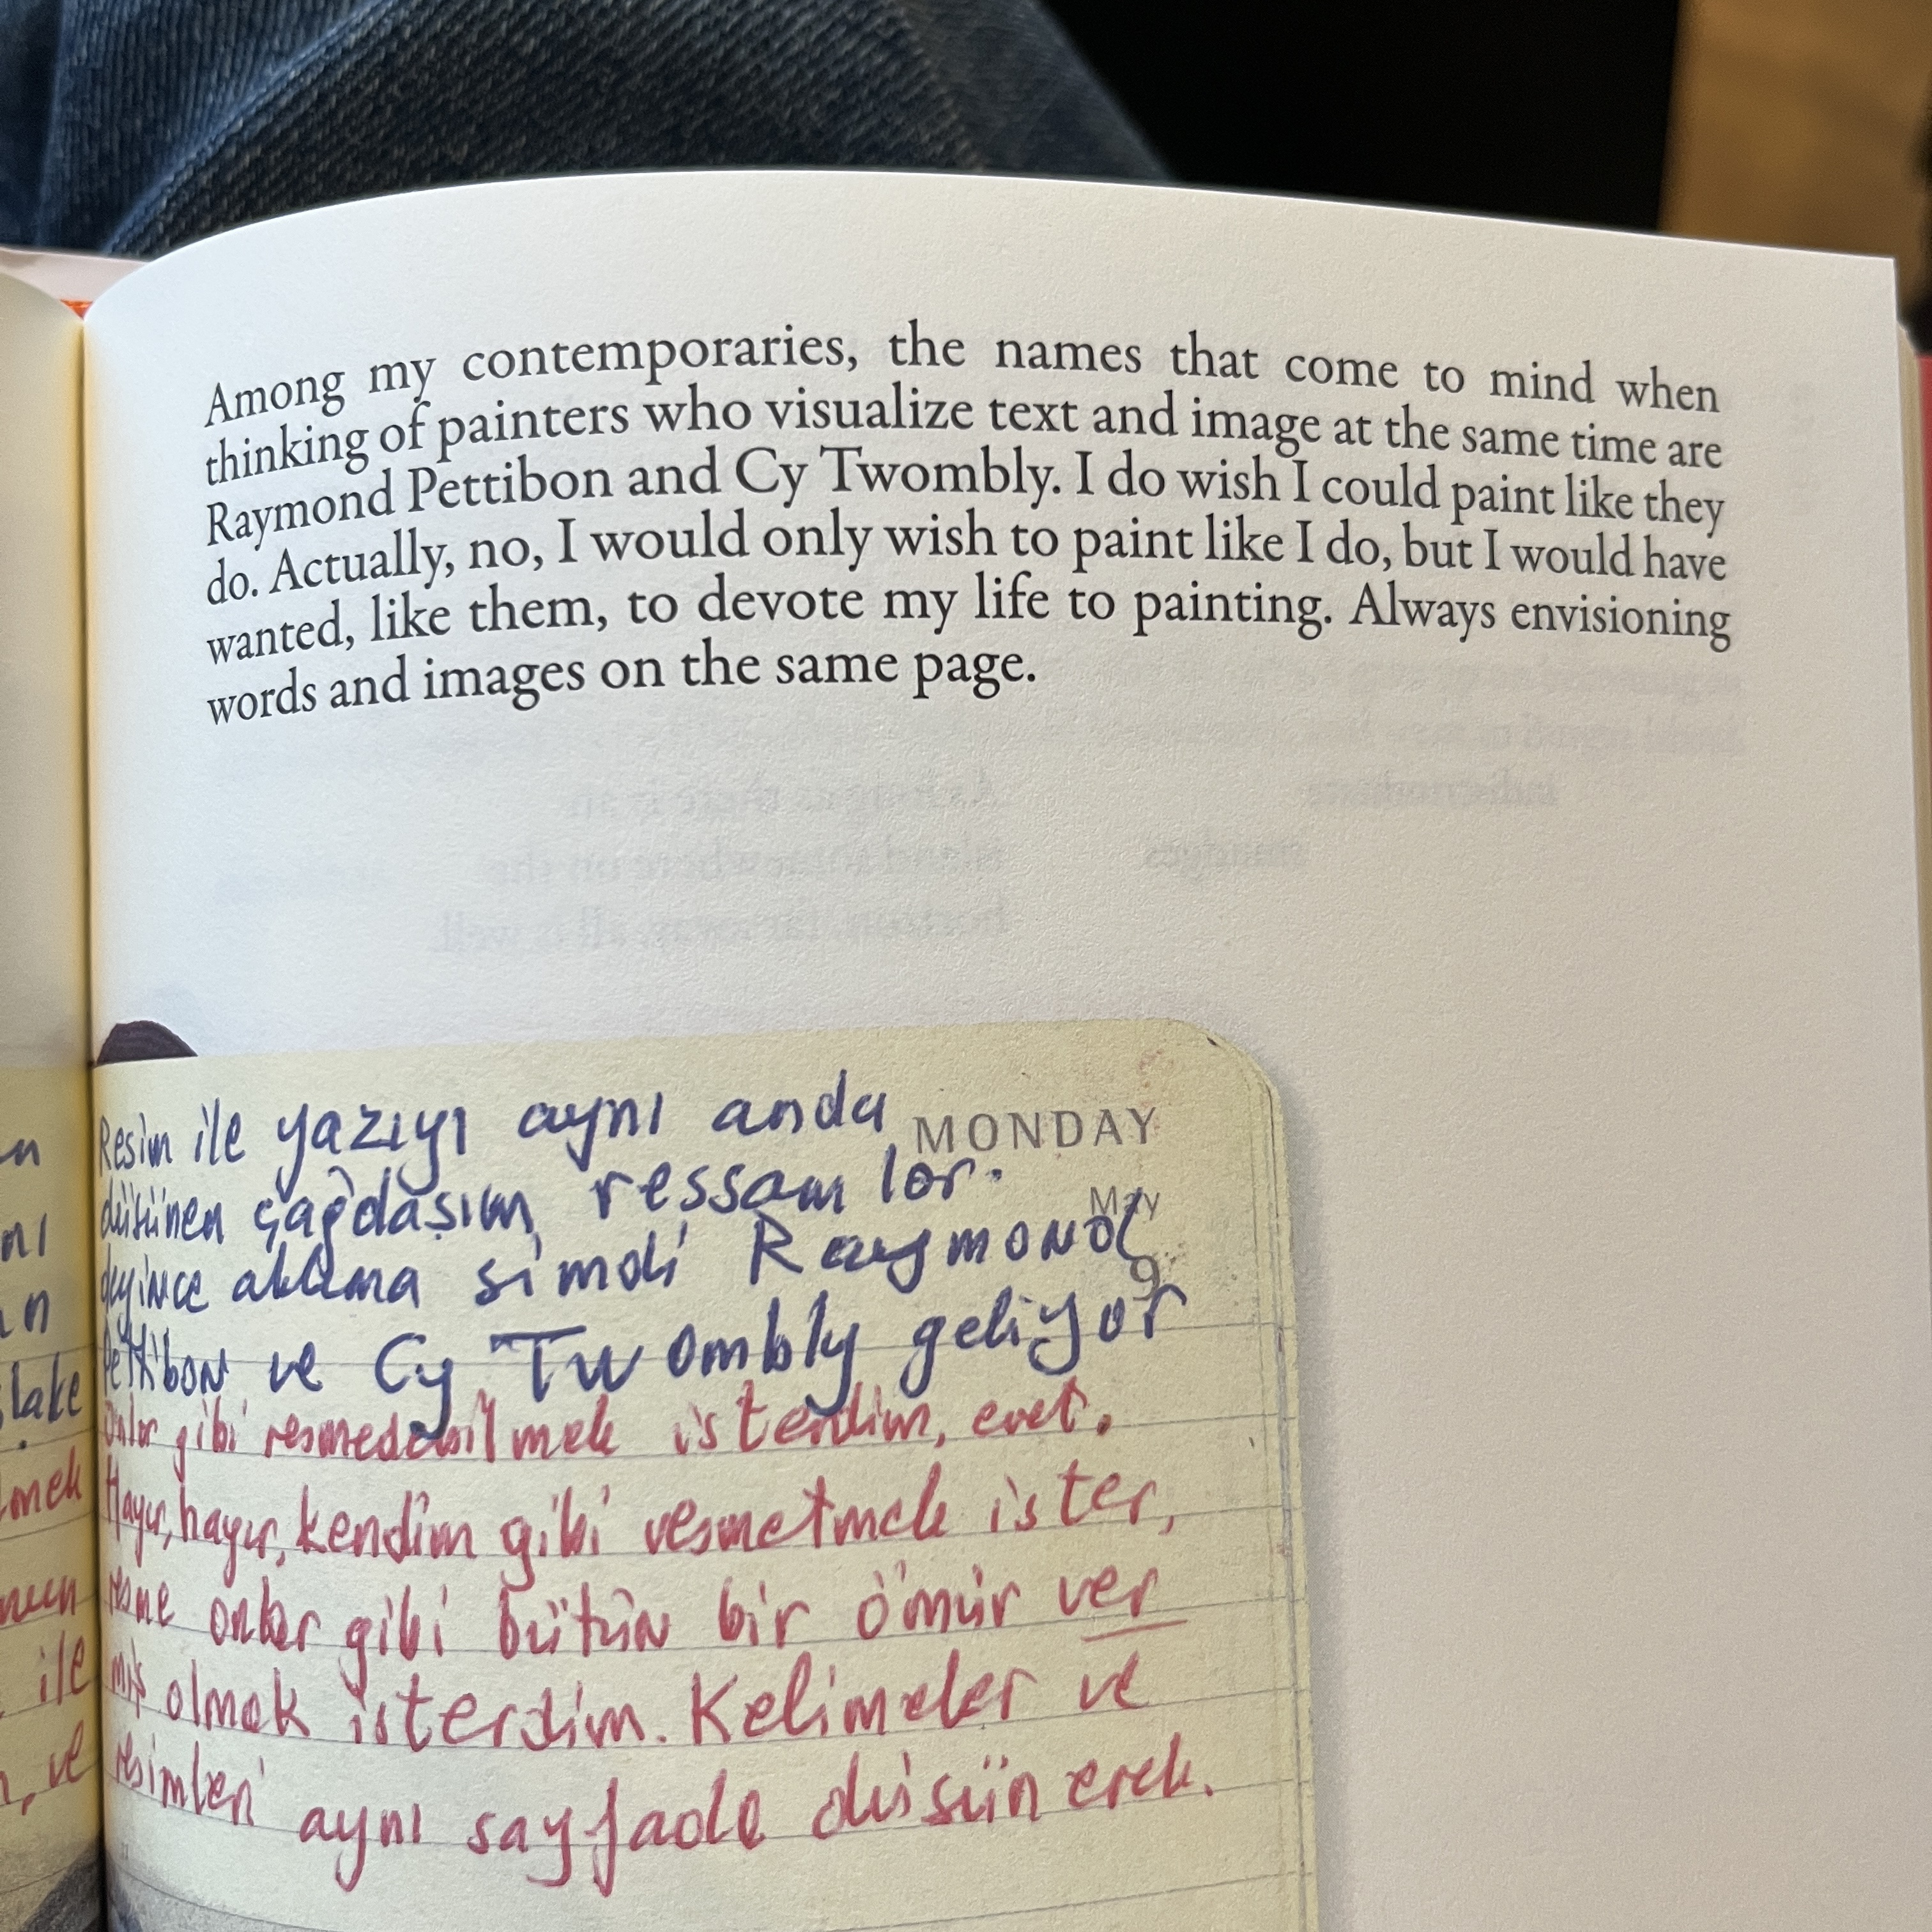 Among my contemporaries, the names that come to mind when
thinking of painters who visualize text and image at the same time are
Raymond Pettibon and Cy Twombly. I do wish I could paint like they
do. Actually, no, I would only wish to paint like I do, but I would have
wanted, like them, to devote my life to painting. Always envisioning
words and images on the same page.
Resim ile yazıyı aynı anda
MONDAY
düşünen çağdaşım ressamlar.
May
deyince aklıma şimdi Raymond
9
Pettibon ve Cy Twombly geliyor
Onlar gibi resmedebilmek isterdim, evet.
Hayır, hayır, kendim gibi resmetmek ister,
resme onlar gibi bütün bir ömür ver
miş olmak isterdim. Kelimeler ve
resimleri aynı sayfada düşünerek.
nı
lake
mek
ile
ve